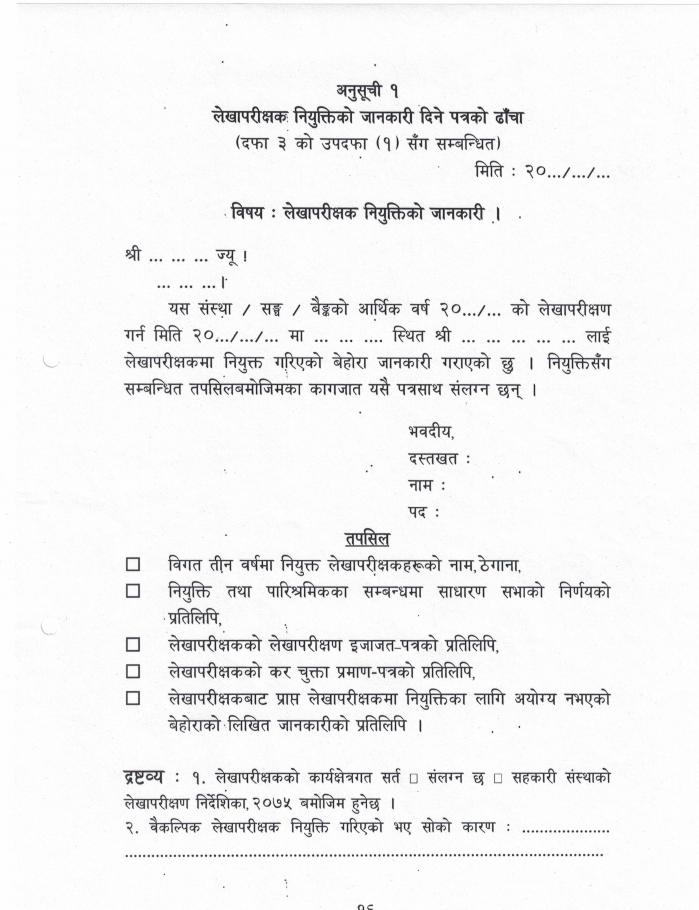 अनुसूची १
लेखापरीक्षक नियुक्तिको जानकारी दिने पत्रको ढाँचा
(दफा ३ को उपदफा (१) सँग सम्बन्धित)
मिति : २०.../.../...
विषय : लेखापरीक्षक नियुक्तिको जानकारी ।
श्री ... ... ... ज्यू !
... ... ... ।
यस संस्था / सङ्घ / बैङ्कको आर्थिक वर्ष २०.../... को लेखापरीक्षण
गर्न मिति २०.../.../... मा ... ... .... स्थित श्री ... ... ... ... ... लाई
लेखापरीक्षकमा नियुक्त गरिएको बेहोरा जानकारी गराएको छु । नियुक्तिसँग
सम्बन्धित तपसिलबमोजिमका कागजात यसै पत्रसाथ संलग्न छन् ।
भवदीय,
दस्तखत :
नाम :
पद :
तपसिल
□ विगत तीन वर्षमा नियुक्त लेखापरीक्षकहरूको नाम,ठेगाना,
□ नियुक्ति तथा पारिश्रमिकका सम्बन्धमा साधारण सभाको निर्णयको
प्रतिलिपि,
□ लेखापरीक्षकको लेखापरीक्षण इजाजत-पत्रको प्रतिलिपि,
□ लेखापरीक्षकको कर चुक्ता प्रमाण-पत्रको प्रतिलिपि,
□ लेखापरीक्षकबाट प्राप्त लेखापरीक्षकमा नियुक्तिका लागि अयोग्य नभएको
बेहोराको लिखित जानकारीको प्रतिलिपि ।
द्रष्टव्य : १. लेखापरीक्षकको कार्यक्षेत्रगत सर्त □ संलग्न छ □ सहकारी संस्थाको
लेखापरीक्षण निर्देशिका,२०७५ बमोजिम हुनेछ ।
२. वैकल्पिक लेखापरीक्षक नियुक्ति गरिएको भए सोको कारण : ....................
..............................................................................................................